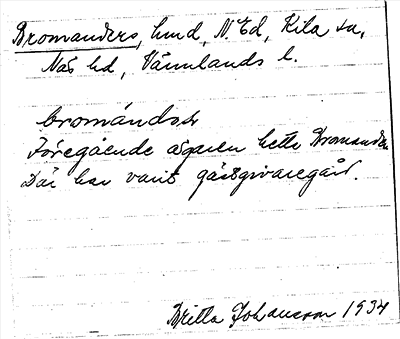 Bromanders, hmd, N. Ed, Kila sn,
Näs hd, Värmlands l.
bromándaṣ
Föregående ägaren hette Bromander.
Där har varit gästgivaregård.
Britta Johansson 1934